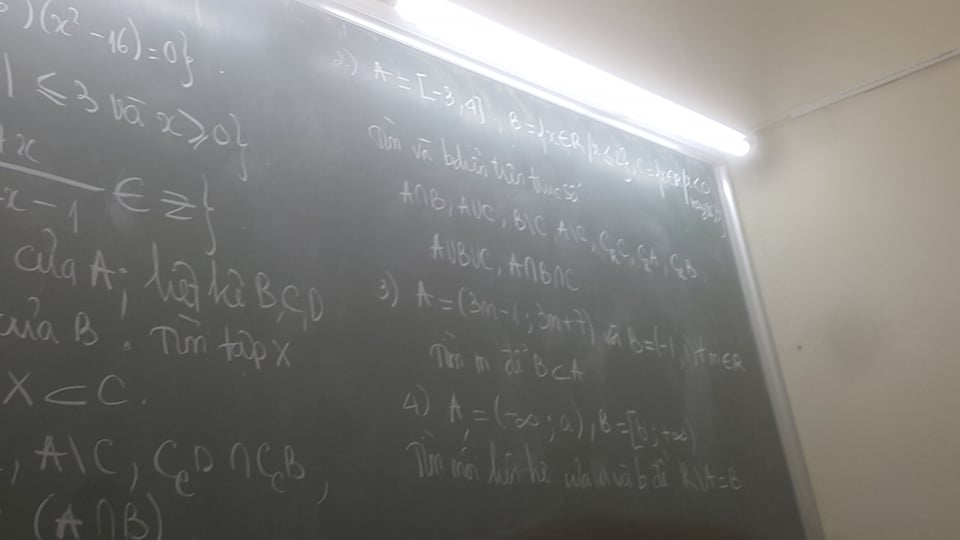 )(x² - 16) = 0}.
| ≤ 3 và x ≥ 0}
x
x - 1 ∈ Z}
của A; liệt kê B, C, D
của B. Tìm tập X
X ⊂ C.
, A\C, C_E D ∩ C_E B,
(A ∩ B)
2) A = [-3; 4], B = {x ∈ R |
Tìm và bdiễn trên trục số
A∩B, A∪C, B\C, A\C, C_R C, C_R A, C_R B,
A∪B∪C, A∩B∩C
3) A = (3m-1; 3m+7) và B = (-1; ∀m∈R
Tìm m để B⊂A
4) A = (-∞; a), B = [b; +∞)
Tìm mối liên hệ của a và b để R\A = B